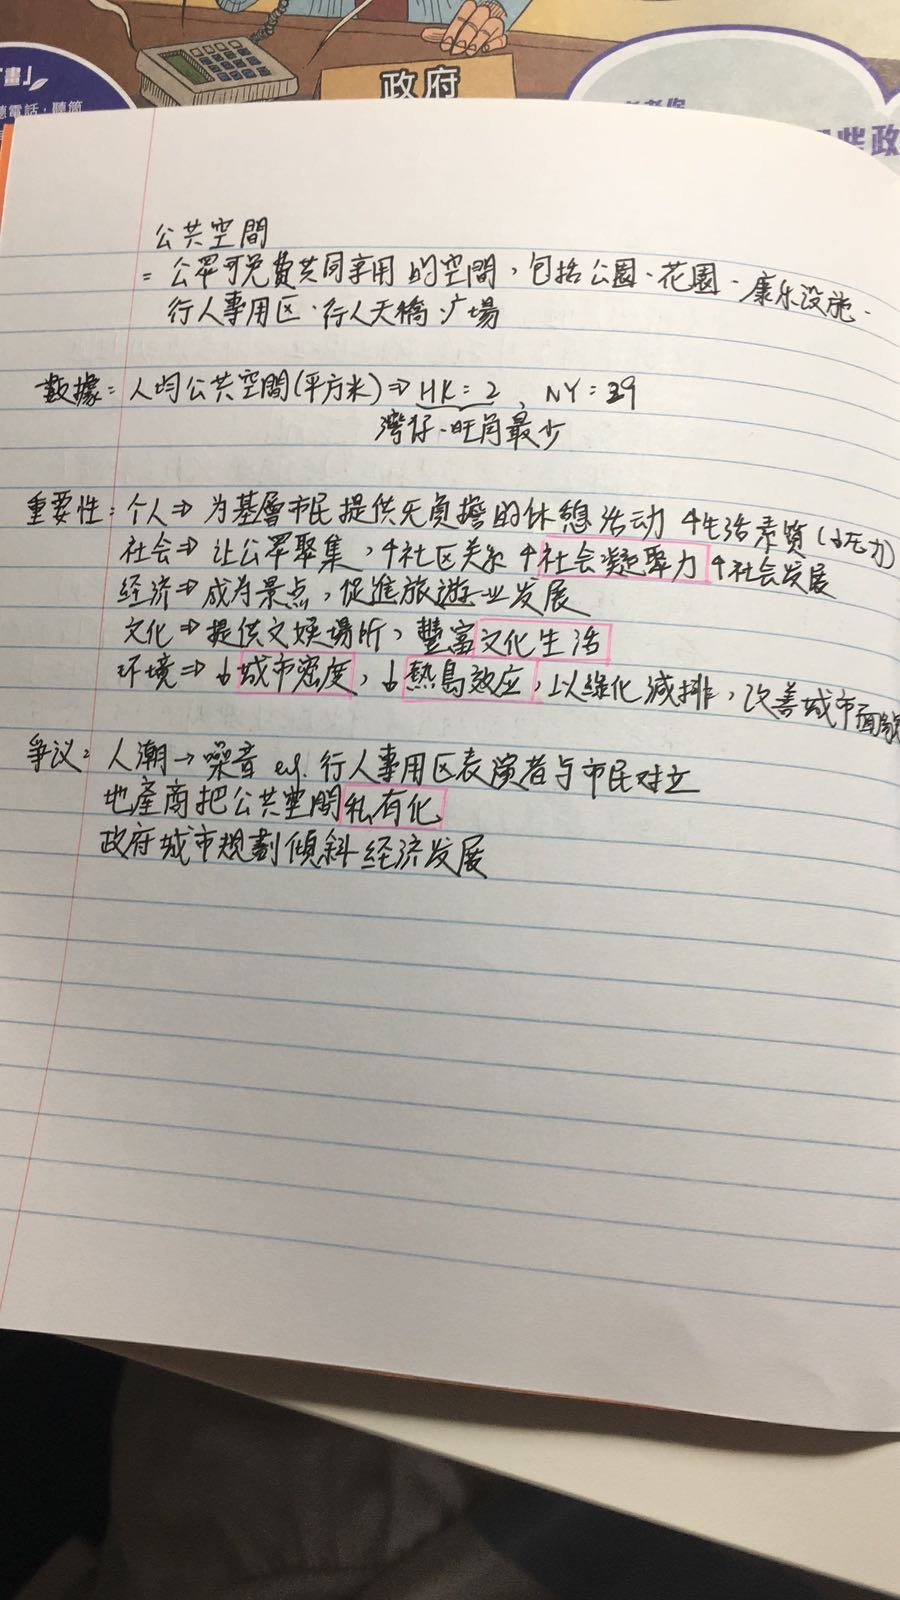 畫」
聽電話，聽筒
政府
些政
公共空間
= 公眾可免費共同享用的空間，包括公園、花園、康乐設施、
行人專用区、行人天橋、广場
數據：人均公共空間(平方米)⇒ HK = 2, NY = 39
灣仔、旺角最少
重要性：个人⇒ 为基層市民提供无負擔的休憩活动 ↑生活素質(↓压力)
社会⇒ 让公眾聚集，↑社区关系 ↑社会凝聚力 ↑社会发展
经济⇒ 成为景点，促進旅遊业发展
文化⇒ 提供文娱場所，豐富文化生活
环境⇒ ↓城市密度，↓熱島效应，以綠化減排，改善城市面貌
爭议：人潮→噪音 e.g. 行人專用区表演者与市民对立
地產商把公共空間私有化
政府城市規劃傾斜经济发展